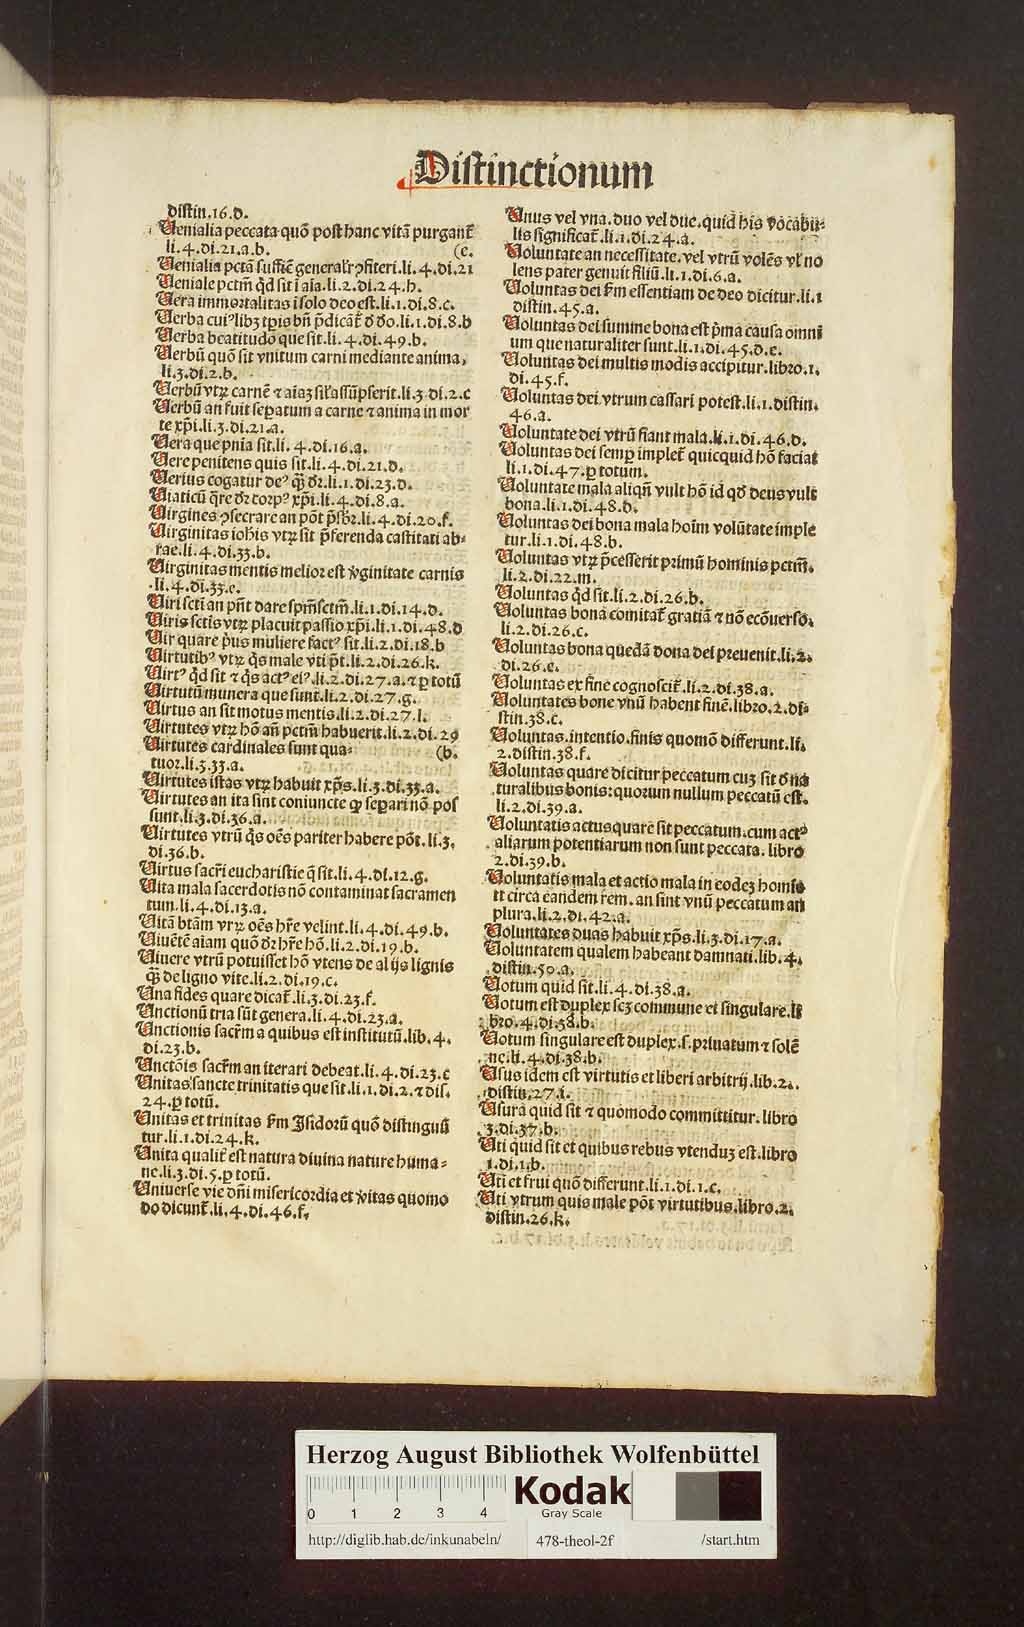 Distinctionum
distin.16.d.
Uenialia peccata quõ post hanc vitã purgant᷑
li.4.di.21.a.b. (c.
Uenialia pctã suffic̃ generalr̃ ꝯfiteri.li.4.di.21
Ueniale pctm̃ qd̃ sit ĩ aĩa.li.2.di.24.h.
Uera immortalitas ĩ solo deo est.li.1.di.8.c.
Uerba cuiꝰlibꝫ tp̃is bñ p̃dicãt᷑ d̃ deo.li.1.di.8.b
Uerba beatitudo que sit.li.4.di.49.b.
Uerbũ quõ sit vnitum carni mediante anima,
li.3.di.2.b.
Uerbũ vtrꝫ carnẽ ⁊ aĩaꝫ sil᷑ assũpserit.li.3.di.2.c
Uerbũ an fuit sep̱atum a carne ⁊ anima in mor
te xp̃i.li.3.di.21.a.
Uera que pn̄ia sit.li.4.di.16.a.
Uere penitens quis sit.li.4.di.21.d.
Uerius cogatur deꝰ q̃ꝫ dr̃.li.1.di.23.d.
Uiaticũ q̃re dr̃ corpꝰ xp̃i.li.4.di.8.a.
Uirgines ꝯsecrare an põt p̃sbr̃.li.4.di.20.f.
Uirginitas iohis vtrꝫ sit p̃ferenda castitati ab⸗
rae.li.4.di.33.b.
Uirginitas mentis melior est v̓ginitate carnis
.li.4.di.33.c.
Uiri scti an pñt dare spm̃sctm̃.li.1.di.14.d.
Uiris sctis vtrꝫ placuit passio xp̃i.li.1.di.48.d
Uir quare p̓us muliere factꝰ sit.li.2.di.18.b
Uirtutibꝰ vtrꝫ q̓s male vti p̃t.li.2.di.26.k.
Uirtꝰ qd̃ sit ⁊ q̓s actꝰ eiꝰ.li.2.di.27.a.⁊ ꝑ totũ
Uirtutũ munera que sunt.li.2.di.27.g.
Uirtus an sit motus mentis.li.2.di.27.l.
Uirtutes vtrꝫ hõ añ pctm̃ habuerit.li.2.di.29
Uirtutes cardinales sunt qua⸗ (b.
tuor.li.3.33.a.
Uirtutes istas vtrꝫ habuit xp̃s.li.3.di.33.a.
Uirtutes an ita sint coniuncte ꝙ seꝑari nõ pos
sunt.li.3.di.36.a.
Uirtutes vtrũ q̓s oẽs pariter habere põt.li.3.
di.36.b.
Uirtus sacr̃i eucharistie q̃ sit.li.4.di.12.g.
Uita mala sacerdotis nõ contaminat sacramen
tum.li.4.di.13.a.
Uitã btãm vtrꝫ oẽs hr̃e velint.li.4.di.49.b.
Uiuẽtẽ aĩam quõ dr̃ hr̃e hõ.li.2.di.19.b.
Uiuere vtrũ potuisset hõ vtens de alijs lignis
q̃ꝫ de ligno vite.li.2.di.19.c.
Una fides quare dicat᷑.li.3.di.23.f.
Unctionũ tria sũt genera.li.4.di.23.a.
Unctionis sacr̃m a quibus est institutũ.lib.4.
di.23.b.
Unctõis sacr̃m an iterari debeat.li.4.di.23.c
Unitas sancte trinitatis que sit.li.1.di.2.⁊ dis.
24.ꝑ totũ.
Unitas et trinitas ẜm Isidorũ quõ distinguũ
tur.li.1.di.24.k.
Unita qualit᷑ est natura diuina nature huma⸗
ne.li.3.di.5.ꝑ totũ.
Uniuerse vie dñi misericordia et v̓itas quomo
do dicunt᷑.li.4.di.46.f.
Unus vel vna.duo vel due.quid his vocabu⸗
lis significat᷑.li.1.di.24.a.
Uoluntate an necessitate.vel vtrũ volẽs vl᷑ no
lens pater genuit filiũ.li.1.di.6.a.
Uoluntas dei ẜm essentiam de deo dicitur.li.1
distin.45.a.
Uoluntas dei summe bona est p̓ma causa omni
um que naturaliter sunt.li.1.di.45.d.e.
Uoluntas dei multis modis accipitur.libro.1.
di.45.f.
Uoluntas dei vtrum cassari potest.li.1.distin.
46.a.
Uoluntate dei vtrũ fiant mala.li.1.di.46.d.
Uoluntas dei semꝑ implet᷑ quicquid hõ faciat
li.1.di.47.ꝑ totum.
Uoluntate mala aliqñ vult hõ id qd̃ deus vult
bona.li.1.di.48.d.
Uoluntas dei bona mala hoĩm volũtate imple
tur.li.1.di.48.b.
Uoluntas vtrꝫ p̃cesserit primũ hominis pctm̃.
li.2.di.22.m.
Uoluntas qd̃ sit.li.2.di.26.b.
Uoluntas bona comitat᷑ gratiã ⁊ nõ ecõuerso.
li.2.di.26.c.
Uoluntas bona quedã dona dei preuenit.li.2.
di.26.e.
Uoluntas ex fine cognoscit᷑.li.2.di.38.a.
Uoluntates bone vnũ habent finẽ.libro.2.di⸗
stin.38.c.
Uoluntas.intentio.finis quomõ differunt.li.
2.distin.38.f.
Uoluntas quare dicitur peccatum cuꝫ sit d̃ na
turalibus bonis:quorum nullum peccatũ est.
li.2.di.39.a.
Uoluntatis actus quare sit peccatum.cum actꝰ
aliarum potentiarum non sunt peccata.libro
2.di.39.b.
Uoluntatis mala et actio mala in eodeꝫ homie
et circa eandem rem.an sint vnũ peccatum an
plura.li.2.di.42.a.
Uoluntates duas habuit xp̃s.li.3.di.17.a.
Uoluntatem qualem habeant damnati.lib.4.
distin.50.a.
Uotum quid sit.li.4.di.38.a.
Uotum est duplex scꝫ commune et singulare.li
bro.4.di.38.b.
Uotum singulare est duplex.ſ.priuatum ⁊ solẽ
ne.li.4.di.38.b.
Usus idem est virtutis et liberi arbitrij.lib.2.
distin.27.i.
Usura quid sit ⁊ quomodo committitur.libro
3.di.37.b.
Uti quid sit et quibus rebus vtenduꝫ est.libro
1.di.1.b.
Uti et frui quõ differunt.li.1.di.1.c.
Uti vtrum quis male põt virtutibus.libro.2.
distin.26.k.
Herzog August Bibliothek Wolfenbüttel
0 1 2 3 4
Kodak
Gray Scale
http://diglib.hab.de/inkunabeln/ 478-theol-2f /start.htm